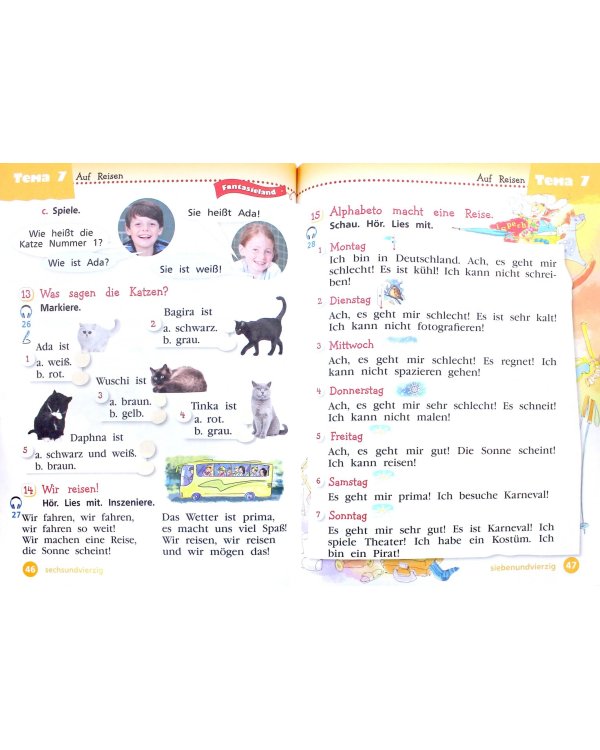 Тема 7
Auf Reisen
Fantasieland
c. Spiele.
Sie heißt Ada!
Wie heißt die
Katze Nummer 1?
Wie ist Ada?
Sie ist weiß!
13 Was sagen die Katzen?
Markiere.
26
Bagira ist
2
a. schwarz.
b. grau.
Ada ist
1
a. weiß.
b. rot.
Wuschi ist
3
a. braun.
b. gelb.
Tinka ist
4
a. rot.
b. grau.
Daphna ist
5
a. schwarz und weiß.
b. braun.
14 Wir reisen!
Hör. Lies mit. Inszeniere.
27
Wir fahren, wir fahren,
wir fahren so weit!
Wir machen eine Reise,
die Sonne scheint!
Das Wetter ist prima,
es macht uns viel Spaß!
Wir reisen, wir reisen
und wir mögen das!
46 sechsundvierzig
Auf Reisen
Тема 7
15 Alphabeto macht eine Reise.
Schau. Hör. Lies mit.
28
1 Montag
Ich bin in Deutschland. Ach, es geht mir
schlecht! Es ist kühl! Ich kann nicht schrei-
ben!
2 Dienstag
Ach, es geht mir schlecht! Es ist sehr kalt!
Ich kann nicht fotografieren!
3 Mittwoch
Ach, es geht mir schlecht! Es regnet! Ich
kann nicht spazieren gehen!
4 Donnerstag
Ach, es geht mir sehr schlecht! Es schneit!
Ich kann nicht malen!
5 Freitag
Ach, es geht mir gut! Die Sonne scheint!
Ich kann reisen!
6 Samstag
Es geht mir prima! Ich besuche Karneval!
7 Sonntag
Es geht mir sehr gut! Es ist Karneval! Ich
spiele Theater! Ich habe ein Kostüm. Ich
bin ein Pirat!
siebenundvierzig 47